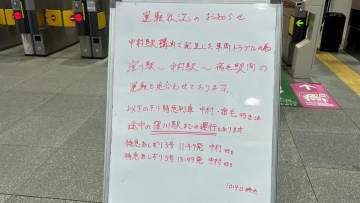 運転状況のお知らせ
中村駅構内で発生した車両トラブルの為
窪川駅〜中村駅〜宿毛駅間の
運転を見合わせております。
以下の下り特急列車 中村・宿毛行きは
途中の窪川駅までの運行となります
特急あしずり3号 11:47発 中村行
特急あしずり5号 13:49発 中村行